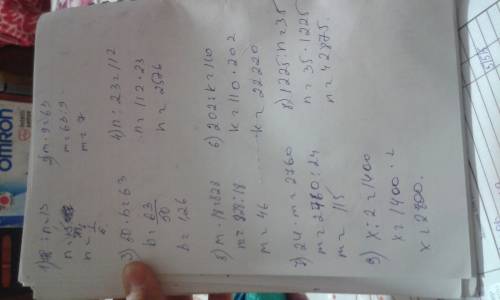 2) m · 9 = 63
m = 63 : 9
m = 7
3) 50 · b = 63
b = 63/50
b = 1,26
4) n : 23 = 112
n = 112 · 23
n = 2576
5) m · 18 = 828
m = 828 : 18
m = 46
6) 202 : k = 110
k = 110 · 202
k = 22220
7) 24 · m = 2760
m = 2760 : 24
m = 115
8) 1225 : n = 35
n = 35 · 1225
n = 42875.
9) x : 2 = 1400
x = 1400 · 2
x = 2800.
OMRON